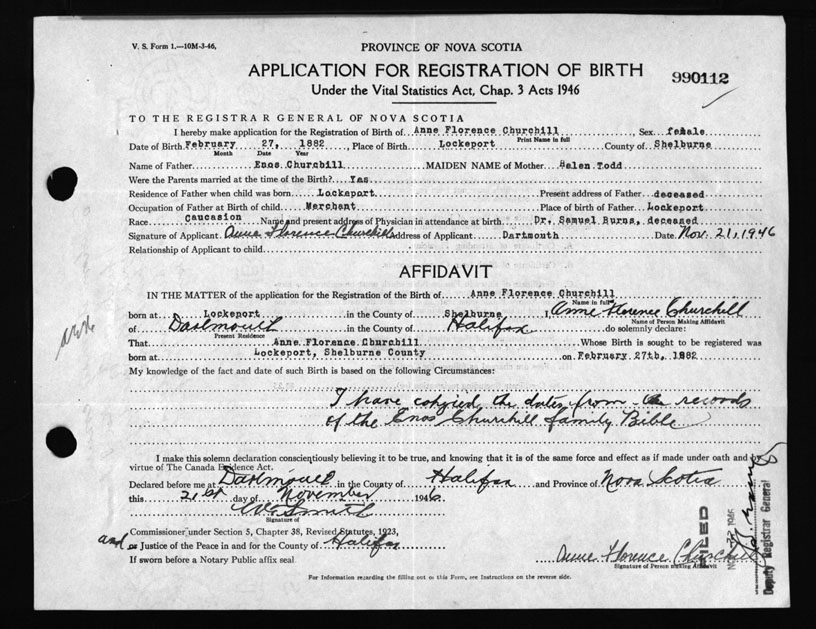 V. S. Form 1.—10M-3-46.
PROVINCE OF NOVA SCOTIA
APPLICATION FOR REGISTRATION OF BIRTH
990112
Under the Vital Statistics Act, Chap. 3 Acts 1946
TO THE REGISTRAR GENERAL OF NOVA SCOTIA
I hereby make application for the Registration of Birth of Anne Florence Churchill, Sex female
Print Name in full
Date of Birth February 27, 1882 Place of Birth Lockeport County of Shelburne
Month Date Year
Name of Father Enos Churchill MAIDEN NAME of Mother Helen Todd
Were the Parents married at the time of the Birth? Yas
Residence of Father when child was born Lockeport Present address of Father deceased
Occupation of Father at Birth of child Merchant Place of birth of Father Lockeport
Race Caucasion Name and present address of Physician in attendance at birth Dr. Samuel Burns, deceased
Signature of Applicant Anne Florence Churchill Address of Applicant Dartmouth Date Nov. 21, 1946
Relationship of Applicant to child
AFFIDAVIT
IN THE MATTER of the application for the Registration of Birth of Anne Florence Churchill
Name in full
born at Lockeport in the County of Shelburne I, Anne Florence Churchill
Name of Person Making Affidavit
of Dartmouth in the County of Halifax do solemnly declare:
Present Residence
That Anne Florence Churchill Whose Birth is sought to be registered was
born at Lockeport, Shelburne County on February 27th, 1882
My knowledge of the fact and date of such Birth is based on the following Circumstances:
I have copyied the dates from the records
of the Enos Churchill family Bible
I make this solemn declaration conscientiously believing it to be true, and knowing that it is of the same force and effect as if made under oath and by
virtue of The Canada Evidence Act.
Declared before me at Dartmouth in the County of Halifax and Province of Nova Scotia
this 21st day of November 1946
Smith
Signature of
Commissioner under Section 5, Chapter 38, Revised Statutes, 1923,
and or Justice of the Peace in and for the County of Halifax
If sworn before a Notary Public affix seal.
Anne Florence Churchill
Signature of Person making Affidavit
For Information regarding the filling out of this Form, see Instructions on the reverse side.
FILED
NOV 22 1946
Deputy Registrar General